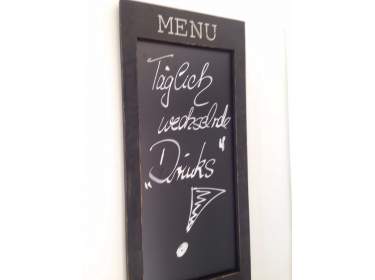 MENU
Täglich
wechselnde
„Drinks"
!